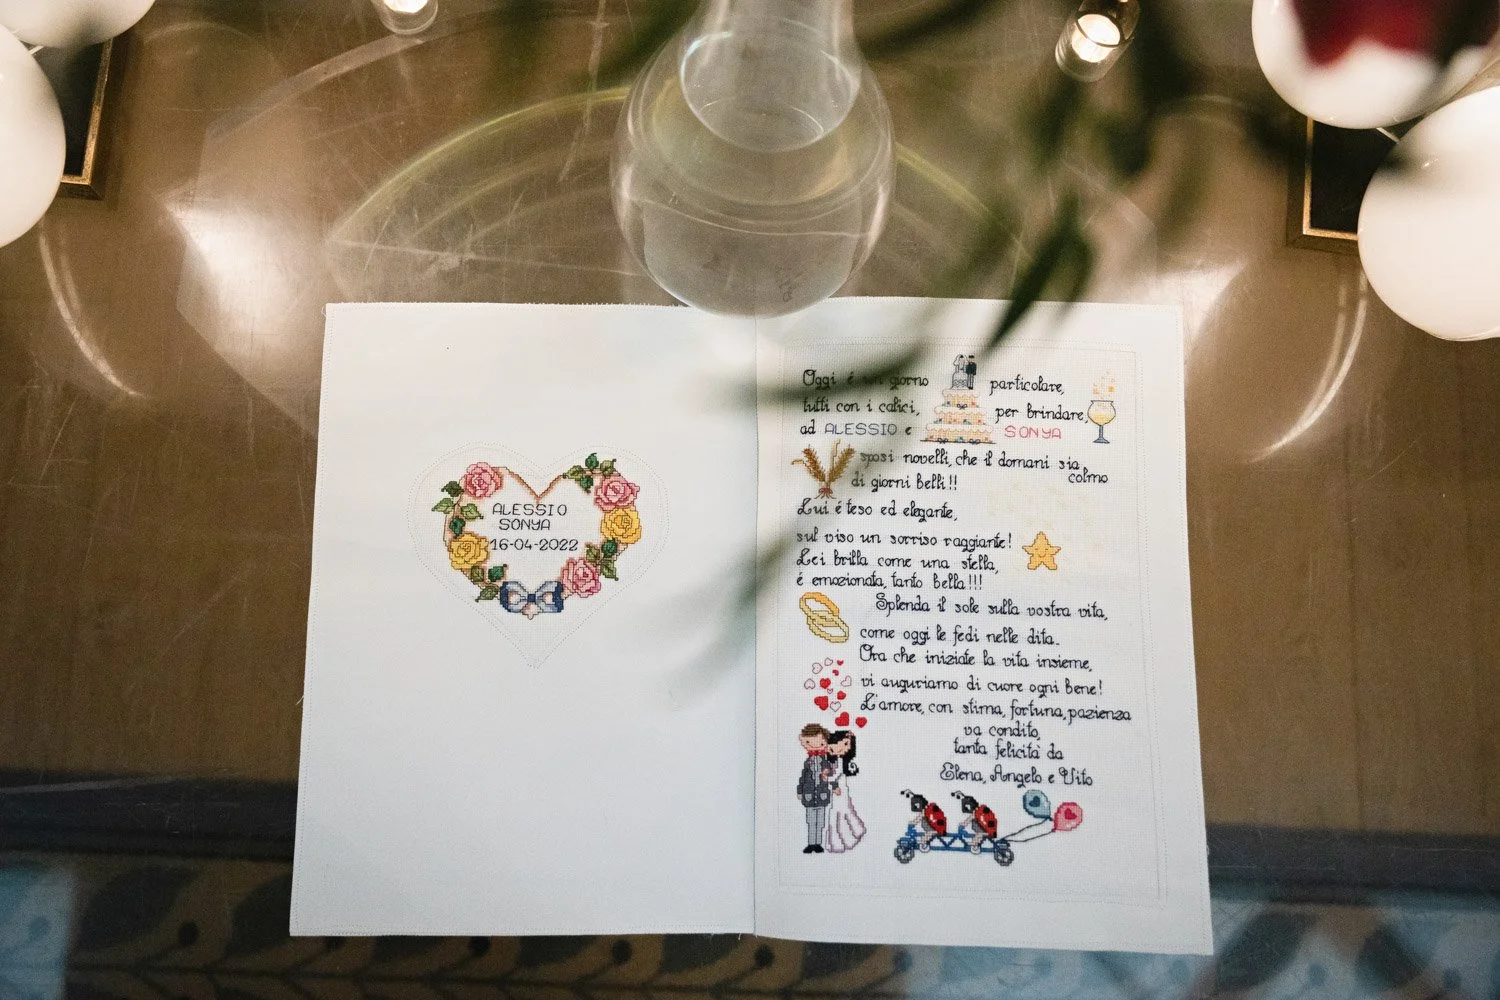 ALESSIO
SONYA
16-04-2022
Oggi é un giorno particolare,
tutti con i calici, per brindare,
ad ALESSIO e SONYA
sposi novelli, che il domani sia
colmo
di giorni belli!!
Lui é teso ed elegante,
sul viso un sorriso raggiante!
Lei brilla come una stella,
é emozionata, tanto bella!!!
Splenda il sole sulla vostra vita,
come oggi le fedi nelle dita.
Ora che iniziate la vita insieme,
vi auguriamo di cuore ogni bene!
L'amore, con stima, fortuna, pazienza
va condito,
tanta felicità da
Elena, Angelo e Vito